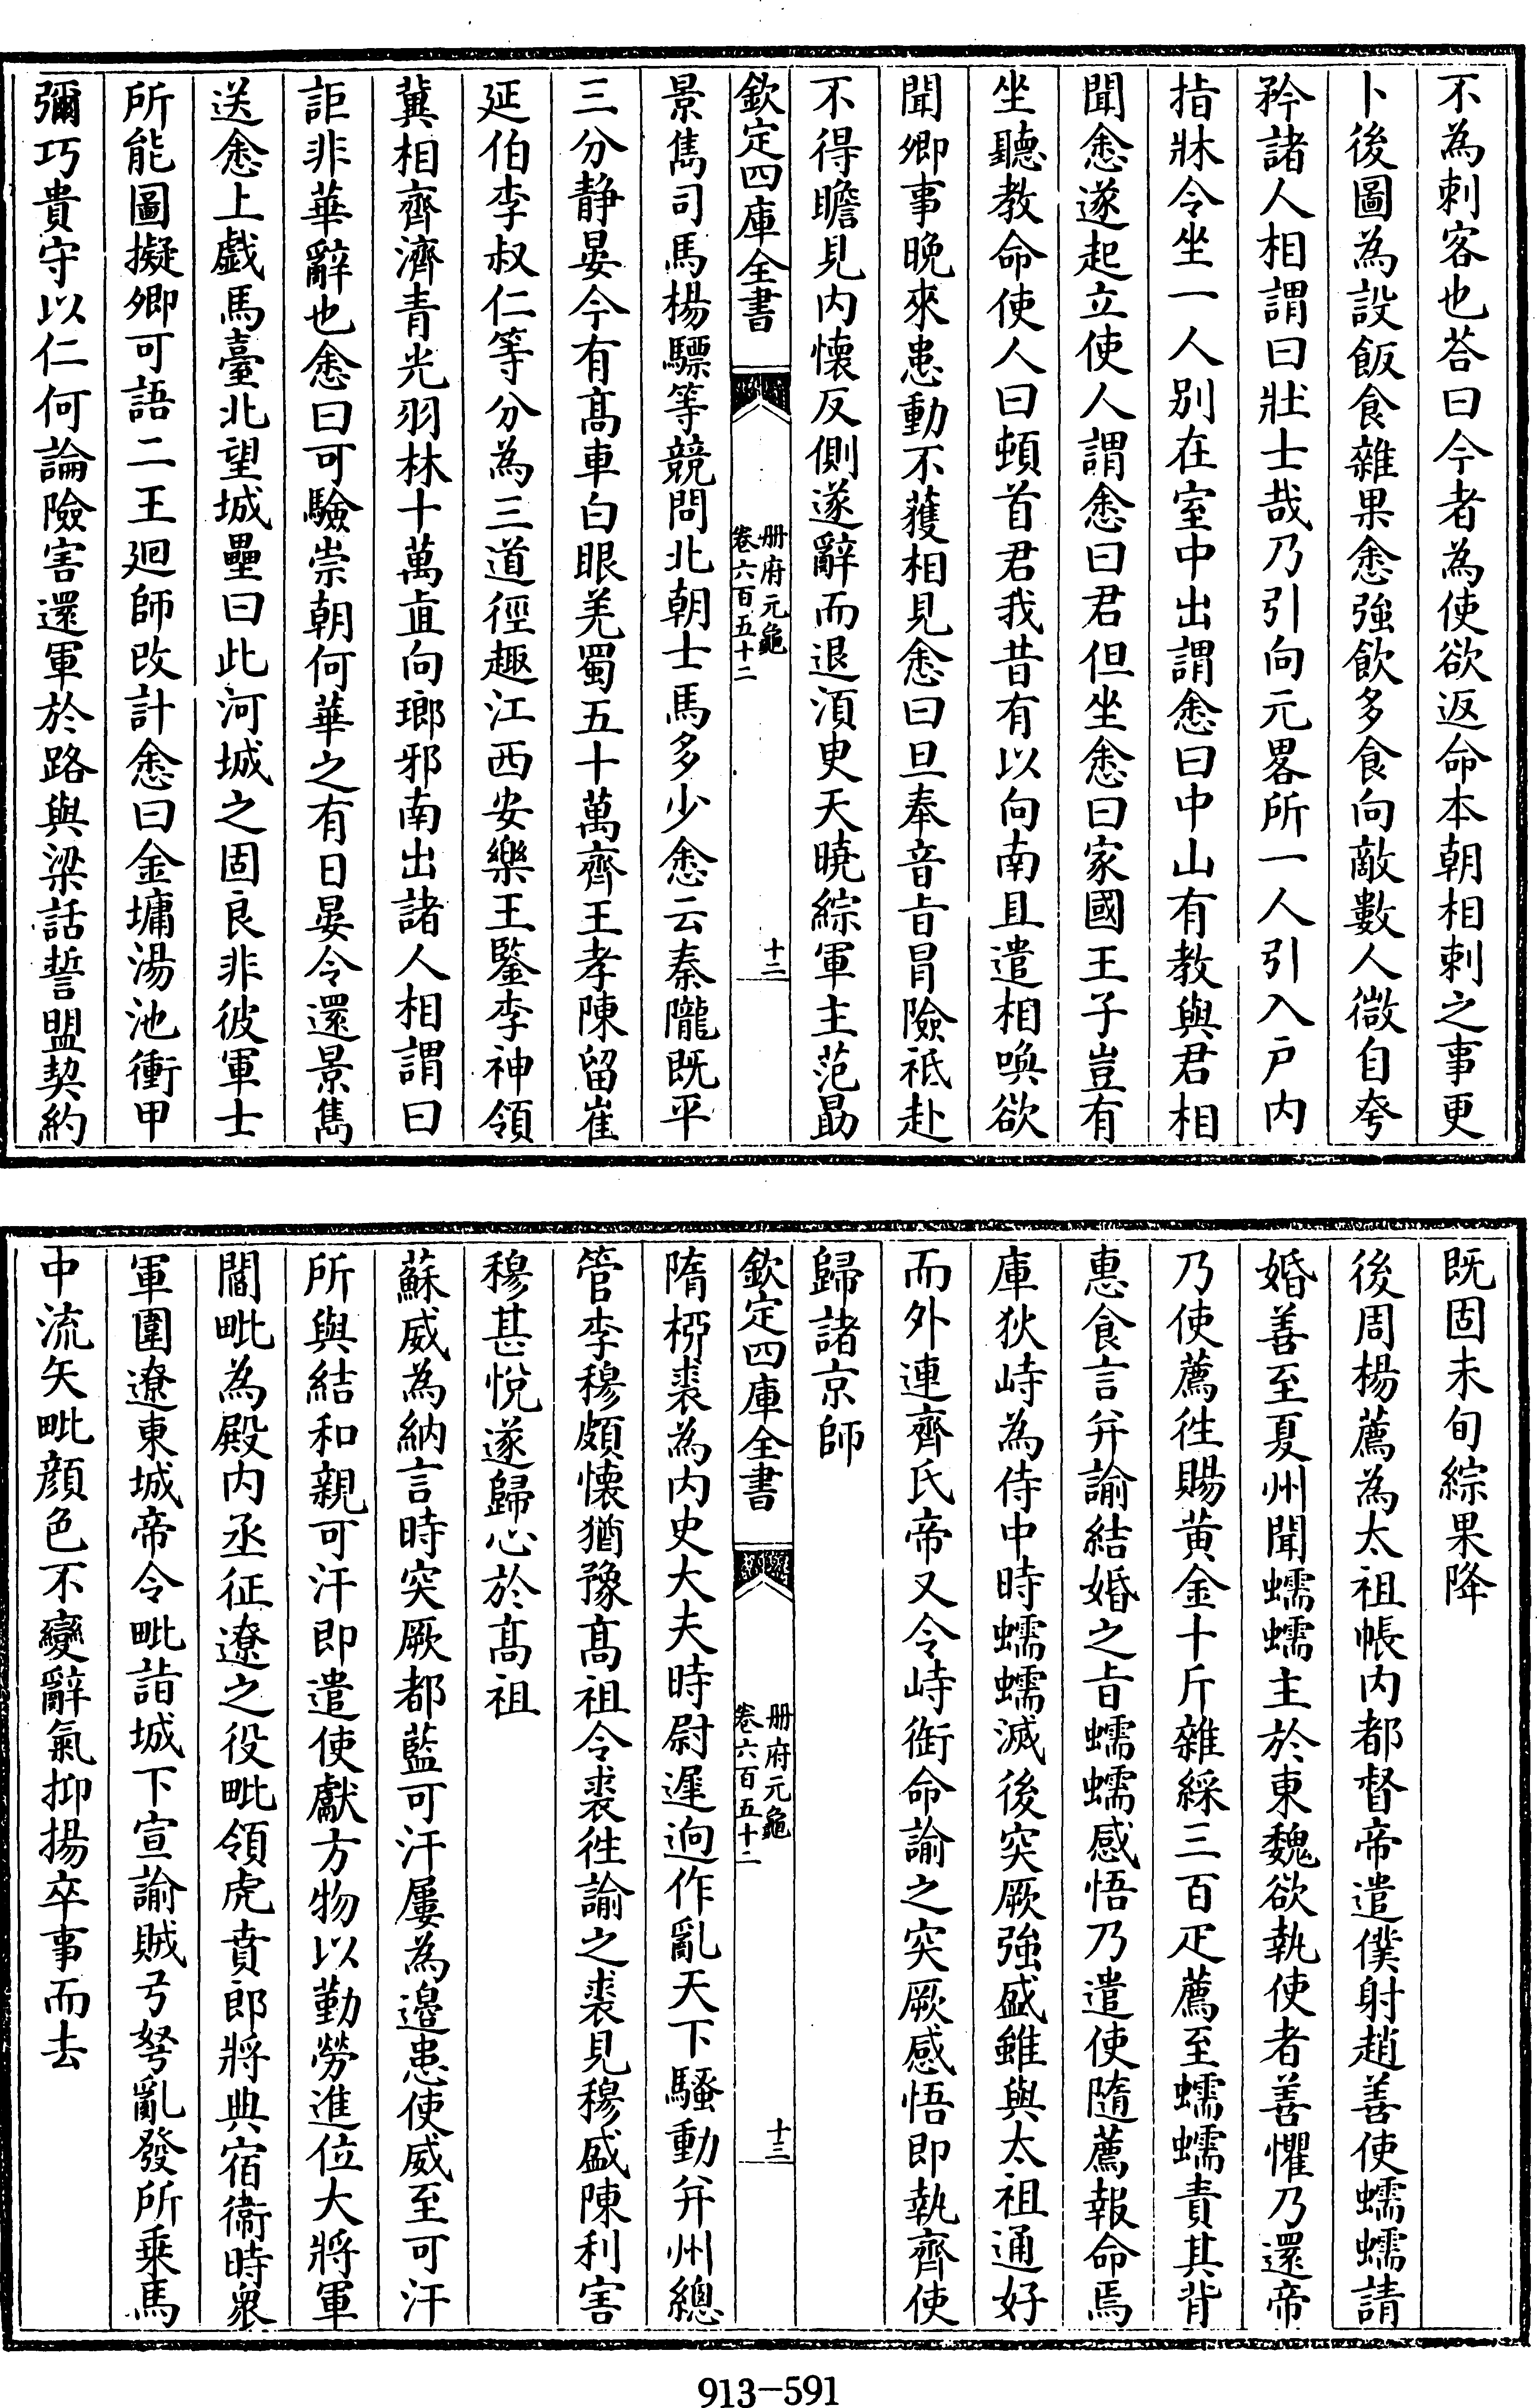 不為刺客也荅曰今者為使欲返命本朝相刺之事更
卜後圖為設飯食雜果悆強飲多食向敵數人微自夸
矜諸人相謂曰壯士哉乃引向元畧所一人引入戶内
指牀令坐一人別在室中出謂悆曰中山有教與君相
聞悆遂起立使人謂悆曰君但坐悆曰家國王子豈有
坐聽教命使人曰頓首君我昔有以向南且遣相喚欲
聞卿事晚來患動不獲相見悆曰旦奉音㫖冒險祗赴
不得瞻見内懐反側遂辭而退湏臾天曉綜軍主范勗
欽定四庫全書
册府元龜
卷六百五十二
十二
景雋司馬楊驃等競問北朝士馬多少悆云秦隴既平
三分静晏今有髙車白眼羌蜀五十萬齊王孝陳留崔
延伯李叔仁等分為三道徑趣江西安樂王鑒李神領
冀相齊濟青光羽林十萬直向瑯邪南出諸人相謂曰
詎非華辭也悆曰可驗崇朝何華之有日晏令還景雋
送悆上戱馬臺北望城壘曰此河城之固良非彼軍士
所能圖擬卿可語二王廻師改計悆曰金墉湯池衝甲
彌巧貴守以仁何論險害還軍於路與梁話誓盟契約
既固未旬綜果降
後周楊薦為太祖帳内都督帝遣僕射趙善使蠕蠕請
婚善至夏州聞蠕蠕主於東魏欲執使者善懼乃還帝
乃使薦徃賜黄金十斤雜綵三百疋薦至蠕蠕責其背
惠食言并諭結婚之㫖蠕蠕感悟乃遣使隨薦報命焉
庫狄峙為侍中時蠕蠕滅後突厥強盛雖與太祖通好
而外連齊氏帝又令峙銜命諭之突厥感悟即執齊使
歸諸京師
欽定四庫全書
册府元龜
卷六百五十二
十三
隋栁裘為内史大夫時尉遲逈作亂天下騷動并州總
管李穆頗懐猶豫髙祖令裘徃諭之裘見穆盛陳利害
穆甚悅遂歸心於髙祖
蘇威為納言時突厥都藍可汗屢為邉患使威至可汗
所與結和親可汗即遣使獻方物以勤勞進位大將軍
閻毗為殿内丞征遼之役毗領虎賁郎將典宿衞時衆
軍圍遼東城帝令毗詣城下宣諭賊弓弩亂發所乗馬
中流矢毗顔色不變辭氣抑揚卒事而去
913-591